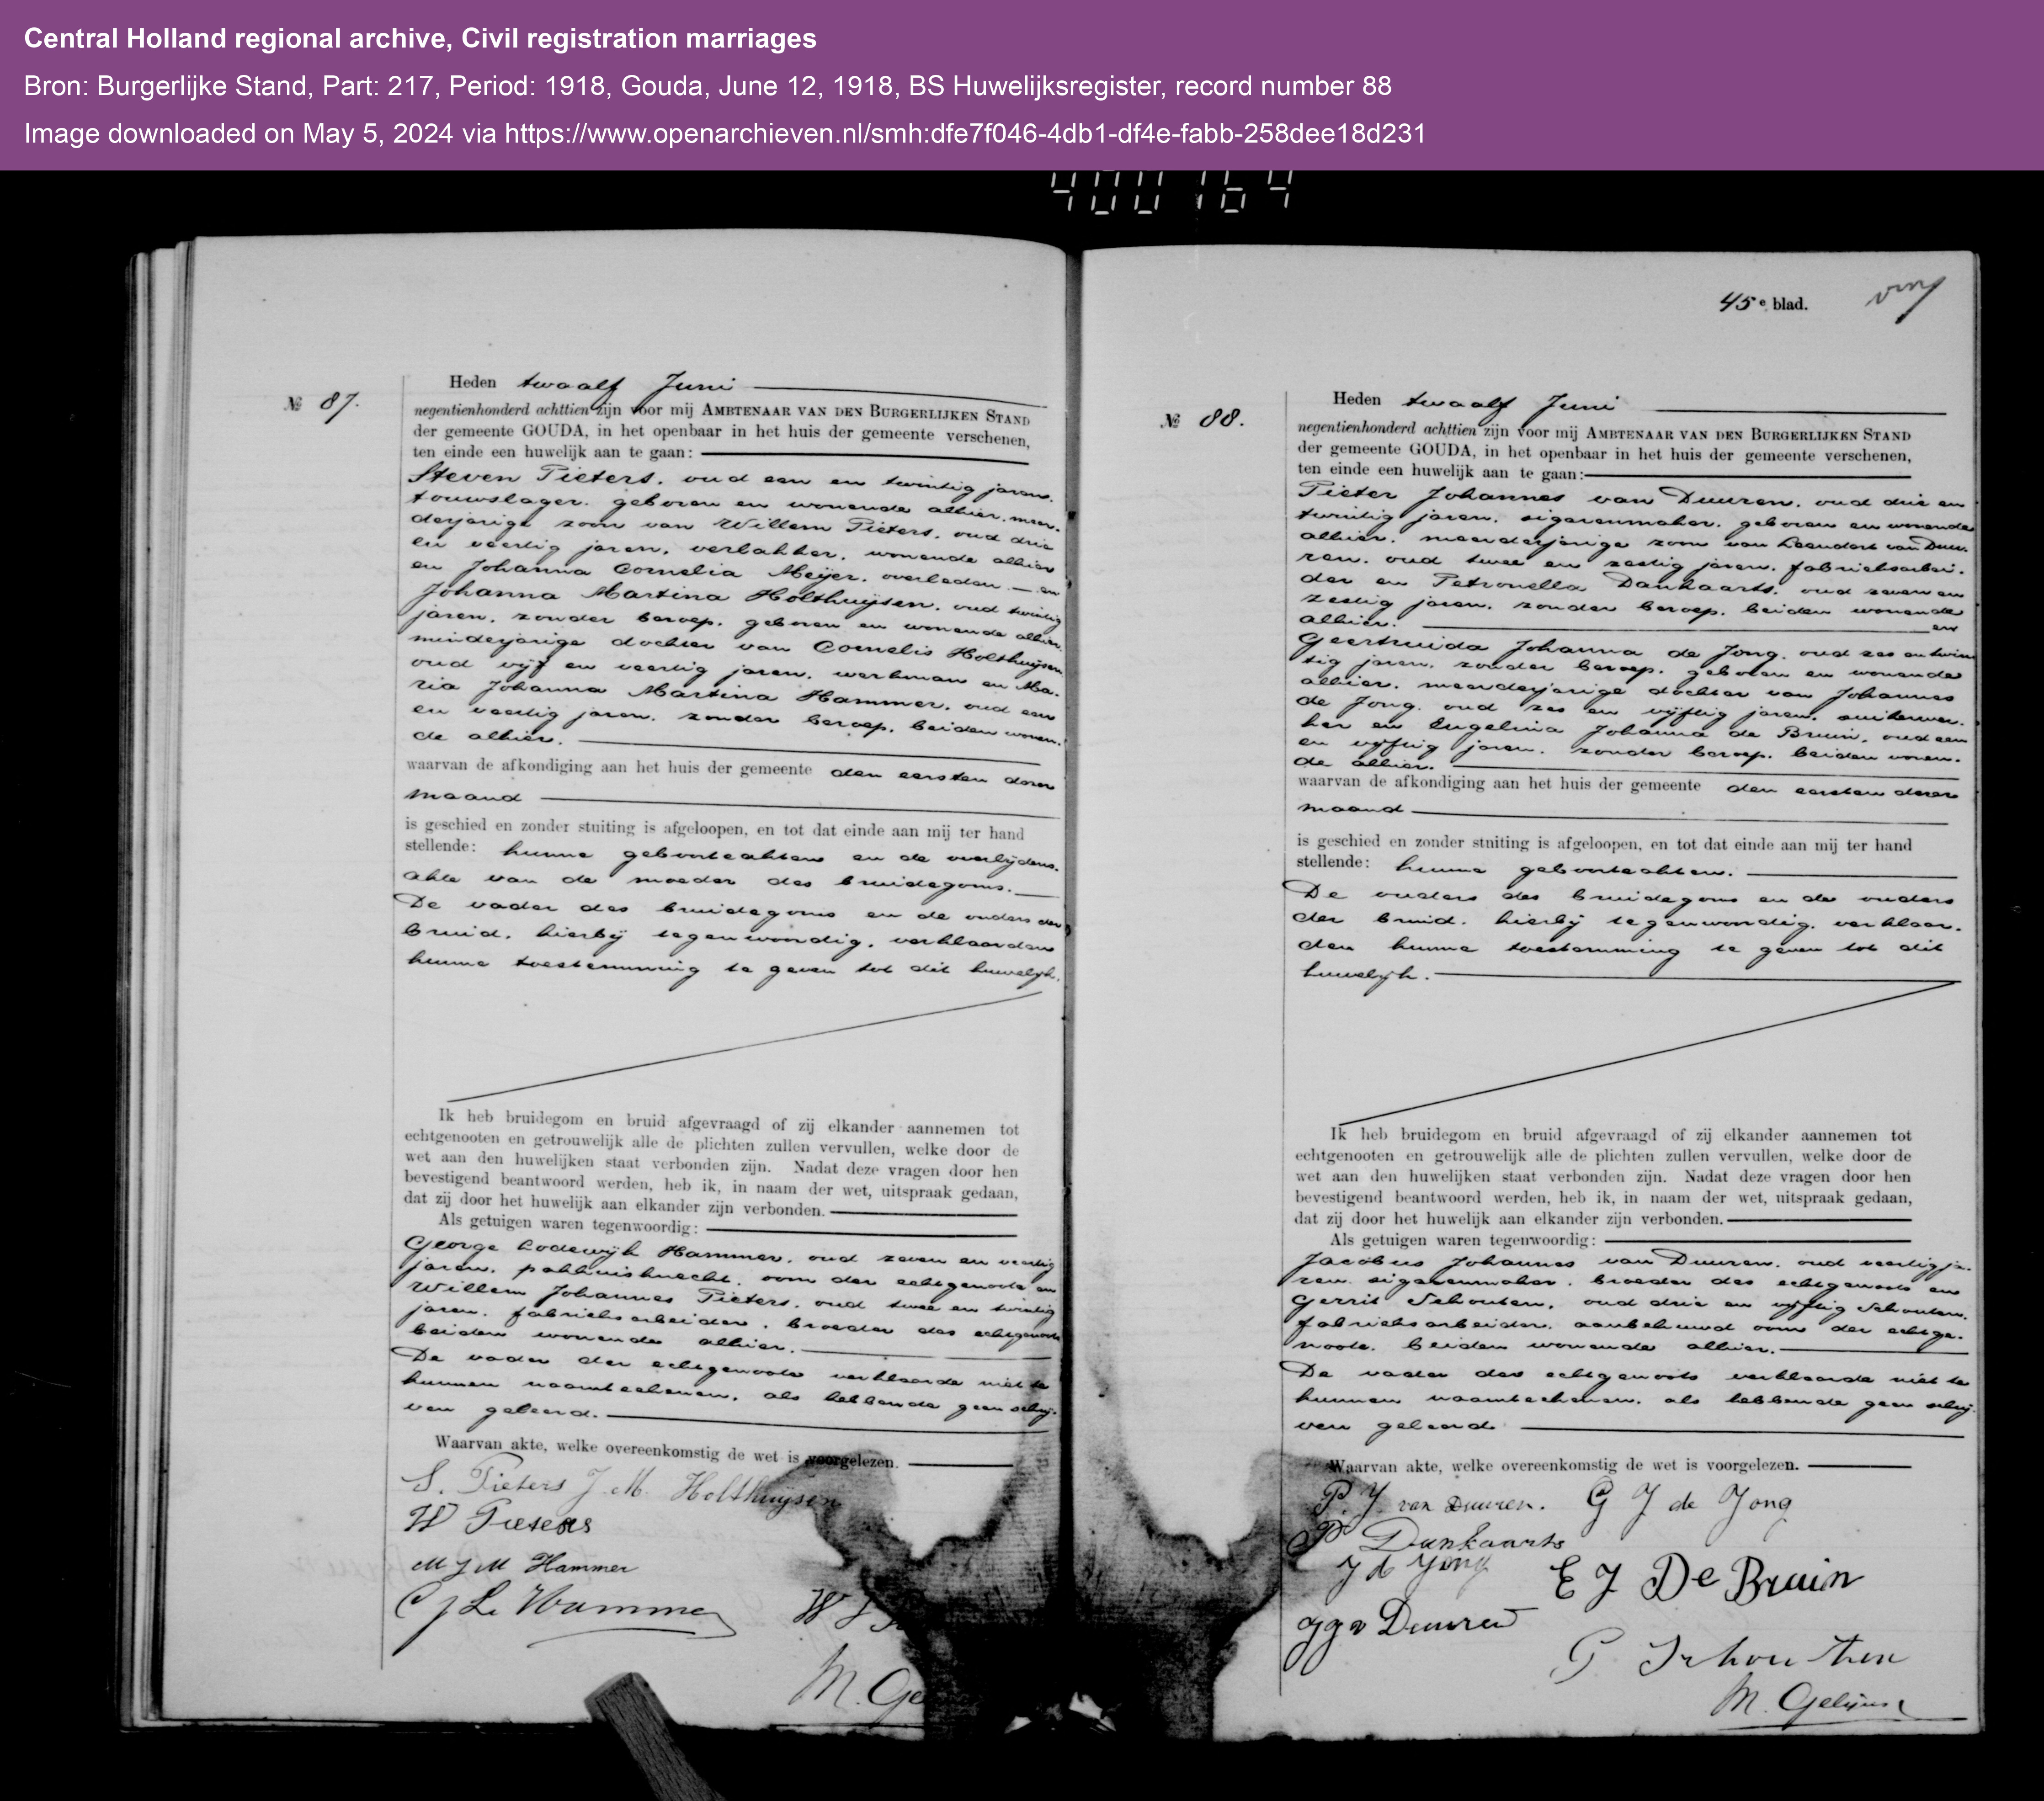 Central Holland regional archive, Civil registration marriages
Bron: Burgerlijke Stand, Part: 217, Period: 1918, Gouda, June 12, 1918, BS Huwelijksregister, record number 88
Image downloaded on May 5, 2024 via https://www.openarchieven.nl/smh:dfe7f046-4db1-df4e-fabb-258dee18d231
400164
№ 87.
Heden twaalf Juni
negentienhonderd achttien zijn voor mij AMBTENAAR VAN DEN BURGERLIJKEN STAND
der gemeente GOUDA, in het openbaar in het huis der gemeente verschenen,
ten einde een huwelijk aan te gaan:
Steven Pieters, oud een en twintig jaren,
touwslager, geboren en wonende alhier, meer-
derjarige zoon van Willem Pieters, oud drie
en veertig jaren, verlakker, wonende alhier
en Johanna Cornelia Meijer, overleden — en
Johanna Martina Holthuijsen, oud twintig
jaren, zonder beroep, geboren en wonende alhier,
minderjarige dochter van Cornelis Holthuijsen
oud vijf en veertig jaren, werkman en Ma-
ria Johanna Martina Hammer, oud een
en veertig jaren, zonder beroep, beiden wonen-
de alhier.
waarvan de afkondiging aan het huis der gemeente den eersten dezer
maand
is geschied en zonder stuiting is afgeloopen, en tot dat einde aan mij ter hand
stellende: hunne geboorteakten en de overlijdens-
akte van de moeder des bruidegoms.
De vader des bruidegoms en de ouders der
bruid, hierbij tegenwoordig, verklaarden
hunne toestemming te geven tot dit huwelijk.
Ik heb bruidegom en bruid afgevraagd of zij elkander aannemen tot
echtgenooten en getrouwelijk alle de plichten zullen vervullen, welke door de
wet aan den huwelijken staat verbonden zijn. Nadat deze vragen door hen
bevestigend beantwoord werden, heb ik, in naam der wet, uitspraak gedaan,
dat zij door het huwelijk aan elkander zijn verbonden.
Als getuigen waren tegenwoordig:
George Lodewijk Hammer, oud zeven en veertig
jaren, pakhuisknecht, oom der echtgenoote en
Willem Johannes Pieters, oud twee en twintig
jaren, fabrieksarbeider, broeder des echtgenoots
beiden wonende alhier.
De vader der echtgenoote verklaarde niet te
kunnen naamteekenen, als hebbende geen schrij-
ven geleerd.
Waarvan akte, welke overeenkomstig de wet is voorgelezen.
S. Pieters J. M. Holthuijsen
W Pieters
M J M Hammer
G L Hammer W J
M. Ge
45e blad.
№ 88.
Heden twaalf Juni
negentienhonderd achttien zijn voor mij AMBTENAAR VAN DEN BURGERLIJKEN STAND
der gemeente GOUDA, in het openbaar in het huis der gemeente verschenen,
ten einde een huwelijk aan te gaan:
Pieter Johannes van Duuren, oud drie en
twintig jaren, sigarenmaker, geboren en wonende
alhier, meerderjarige zoon van Leendert van Duu-
ren, oud twee en zestig jaren, fabrieksarbei-
der en Petronella Dankaarts, oud zeven en
zestig jaren, zonder beroep, beiden wonende
alhier. en
Geertruida Johanna de Jong, oud zes en twin
tig jaren, zonder beroep, geboren en wonende
alhier, meerderjarige dochter van Johannes
de Jong, oud zes en vijftig jaren, suikerwer-
ker en Engelina Johanna de Bruin, oud een
en vijftig jaren, zonder beroep, beiden wonen-
de alhier.
waarvan de afkondiging aan het huis der gemeente den eersten dezer
maand
is geschied en zonder stuiting is afgeloopen, en tot dat einde aan mij ter hand
stellende: hunne geboorteakten.
De ouders des bruidegoms en de ouders
der bruid, hierbij tegenwoordig, verklaar-
den hunne toestemming te geven tot dit
huwelijk.
Ik heb bruidegom en bruid afgevraagd of zij elkander aannemen tot
echtgenooten en getrouwelijk alle de plichten zullen vervullen, welke door de
wet aan den huwelijken staat verbonden zijn. Nadat deze vragen door hen
bevestigend beantwoord werden, heb ik, in naam der wet, uitspraak gedaan,
dat zij door het huwelijk aan elkander zijn verbonden.
Als getuigen waren tegenwoordig:
Jacobus Johannes van Duuren, oud veertig ja-
ren, sigarenmaker, broeder des echtgenoots en
Gerrit Schouten, oud drie en vijftig Schouten,
fabrieksarbeider, aanbehuwd oom der echtge-
noote, beiden wonende alhier.
De vader des echtgenoots verklaarde niet te
kunnen naamteekenen, als hebbende geen schrij
ven geleerd
Waarvan akte, welke overeenkomstig de wet is voorgelezen.
P. J van Duuren. G J de Jong
P Dankaarts
J d Jong E J De Bruin
J J v Duuren
G Schouten
M. Gelijns